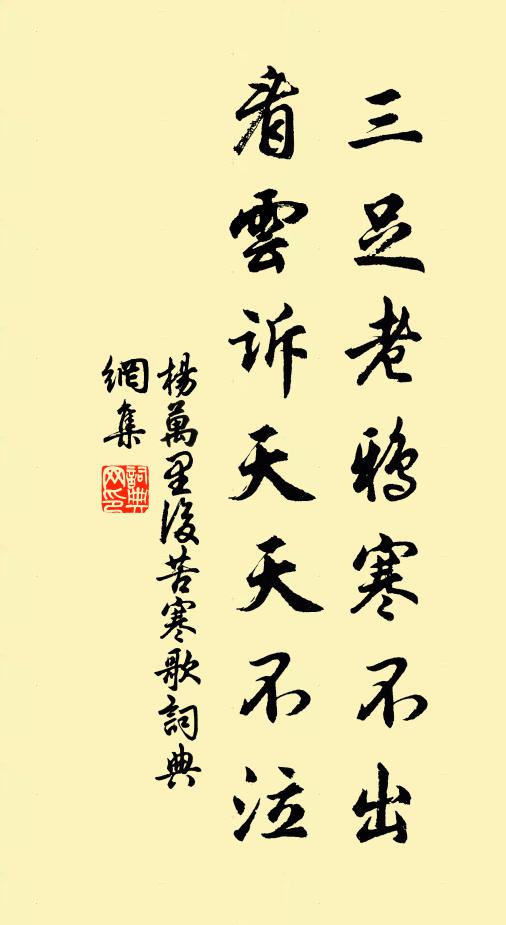 三足老鴉寒不出
看雲訴天天不泣
楊萬里後苦寒歌詞典
網集
詞典
网印